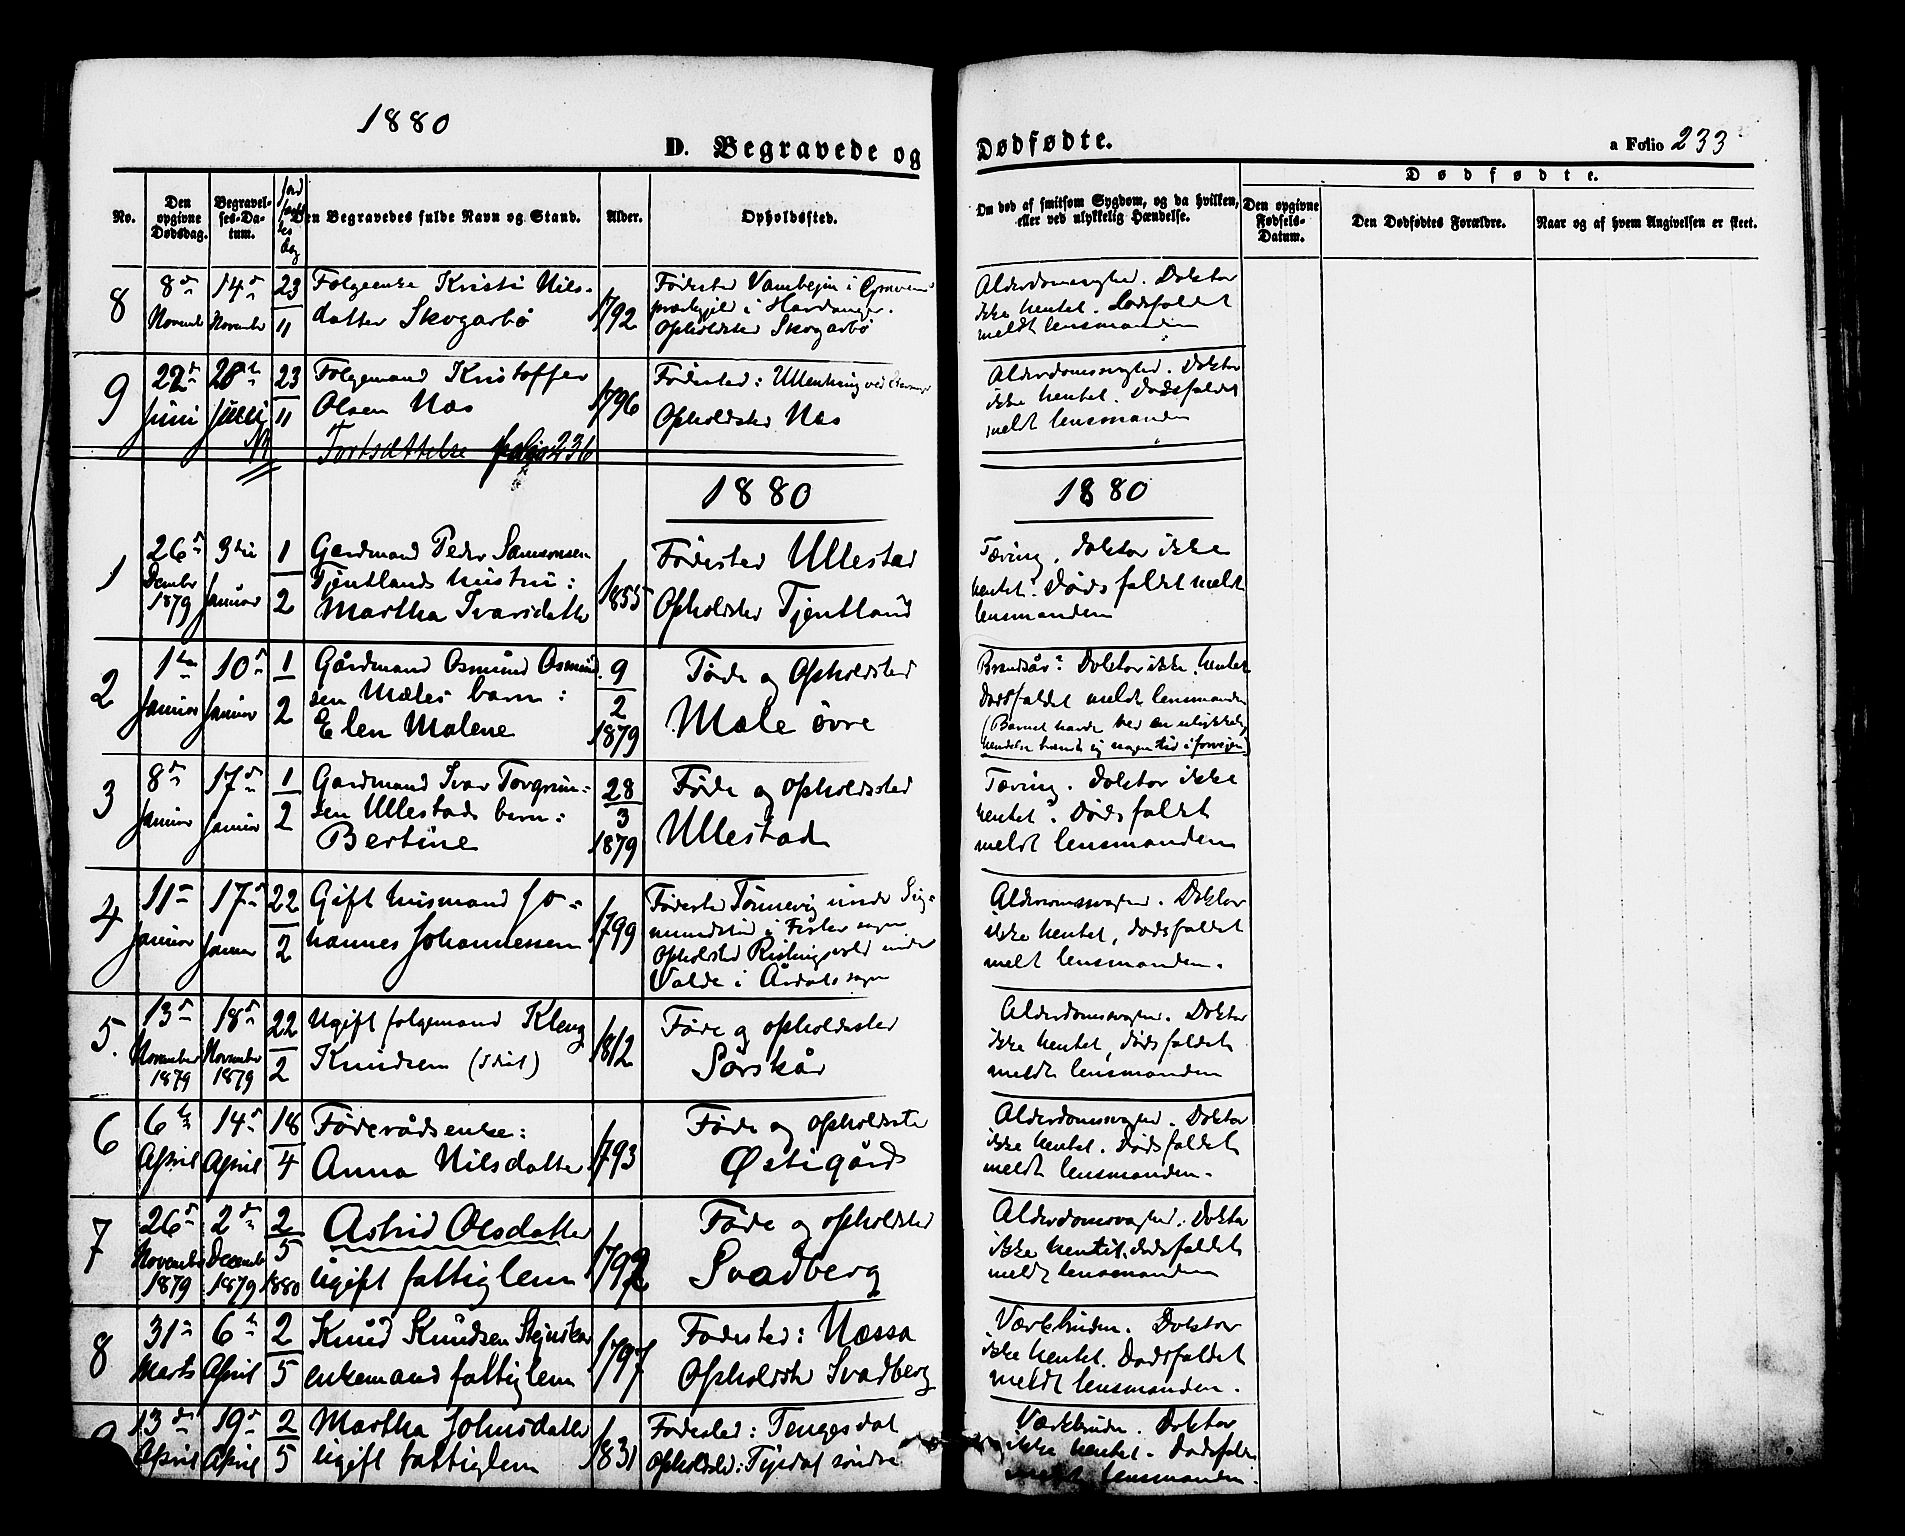 1880
D. Begravede og Dødfødte.
a Folio 233
No.
Den opgivne Dødsdag.
Begravelses-Datum.
Den Begravedes fulde Navn og Stand.
Alder.
Opholdssted.
Om død af smitsom Sygdom, og da hvilken, eller ved ulykkelig Hændelse.
Dødfødte.
Den opgivne Fødsels-Datum.
Den Dødfødtes Forældre.
Naar og af hvem Angivelsen er skeet.
8
8de Novembr
14de Novembr
23/11
Følgeenke Kristi Nils-
datter Skogarbø
1792
Fødested Vambejm i Graven
præstegjeld i Hardanger.
Opholdsted Skogarbø
Alderdomsvaghed. Doktor
ikke hentet. Dødsfaldet
meldt lensmanden
9
22de Juni
28de Juli
23/11
Følgemand Kristoffer
Olsen Næs
1796
Fødested: Ullenhaug ved
Opholdsted Næs
Alderdomsvaghed. Doktor
ikke hentet. Dødsfaldet
meldt lensmanden
Fortsættelse folio 236
1880
1880
1
26de Decmbr 1879
3die Januar
1/2
Gardmand Peder Samsonsen
Tjentlands hustru:
Martha Ivarsdatter
1855
Fødested Ullestad
Opholdsted Tjentland
Tæring. Doktor ikke
hentet. Dødsfaldet meldt
lensmanden
2
1ste Januar
10de Januar
1/2
Gårdmand Osmund Osmund-
sen Mæles barn:
Elen Malene
9/2 1879
Føde og Opholdsted
Mæle øvre
Brandsår? Doktor ikke hentet
Dødsfaldet meldt lensmanden
(Barnet havde ved en ulykkelig
hendelse brændt sig nogen tid i forvejen)
3
8de Januar
17de Januar
1/2
Gardmand Ivar Torgrim-
sen Ullestads barn:
Bertine
28/3 1879
Føde og opholdssted
Ullestad
Tæring. Doktor ikke
hentet. Dødsfaldet
meldt lensmanden
4
11te Januar
17de Januar
22/2
Gift husmand Jo-
hannes Johannessen
1799
Fødested Tønnevig under Sig-
mundstad i Fister sogn
Opholdsted Ristingsvold under
Valde i Årdals sogn
Alderdomsvaghed. Doktor
ikke hentet, dødsfaldet
meldt lensmanden.
5.
13de November 1879
18de November 1879
22/2
Ugift folgemand Kleng
Knudsen
1812
Føde og opholdssted
Sørskår
Alderdomsvaghed. Doktor
ikke hentet, dødsfaldet
meldt lensmanden
6
6te April
14de April
18/4
Føderådsenke:
Anna Nilsdatter
1793
Føde og opholdsste
Østigård
Alderdomsvaghed. Doktor
ikke hentet. Dødsfaldet
meldt lensmanden.
7
26de November 1879
2den December 1879
2/5 1880
Astrid Olsdatter
ugift fattiglem
1792
Føde og opholdsted
Svadberg
Alderdomsvaghed. Doktor
ikke hentet. dødsfaldet
meldt lensmanden
8
31te Marts
6te April
2/5
Knud Knudsen Stejnskar
enkemand fattiglem
1797
Fødested: Næssa
Opholdste Svadberg
Værkbruden. Doktor
ikke hentet. Dødsfaldet
meldt lensmanden.
13de April
19de April
2/5
Martha Johnsdatter
ugift fattiglem
1831
Fødested: Tengesdal
Opholdsted: Tysdal søndre
Værkbruden. Doktor
ikke hentet. Dødsfaldet
meldt lensmanden.